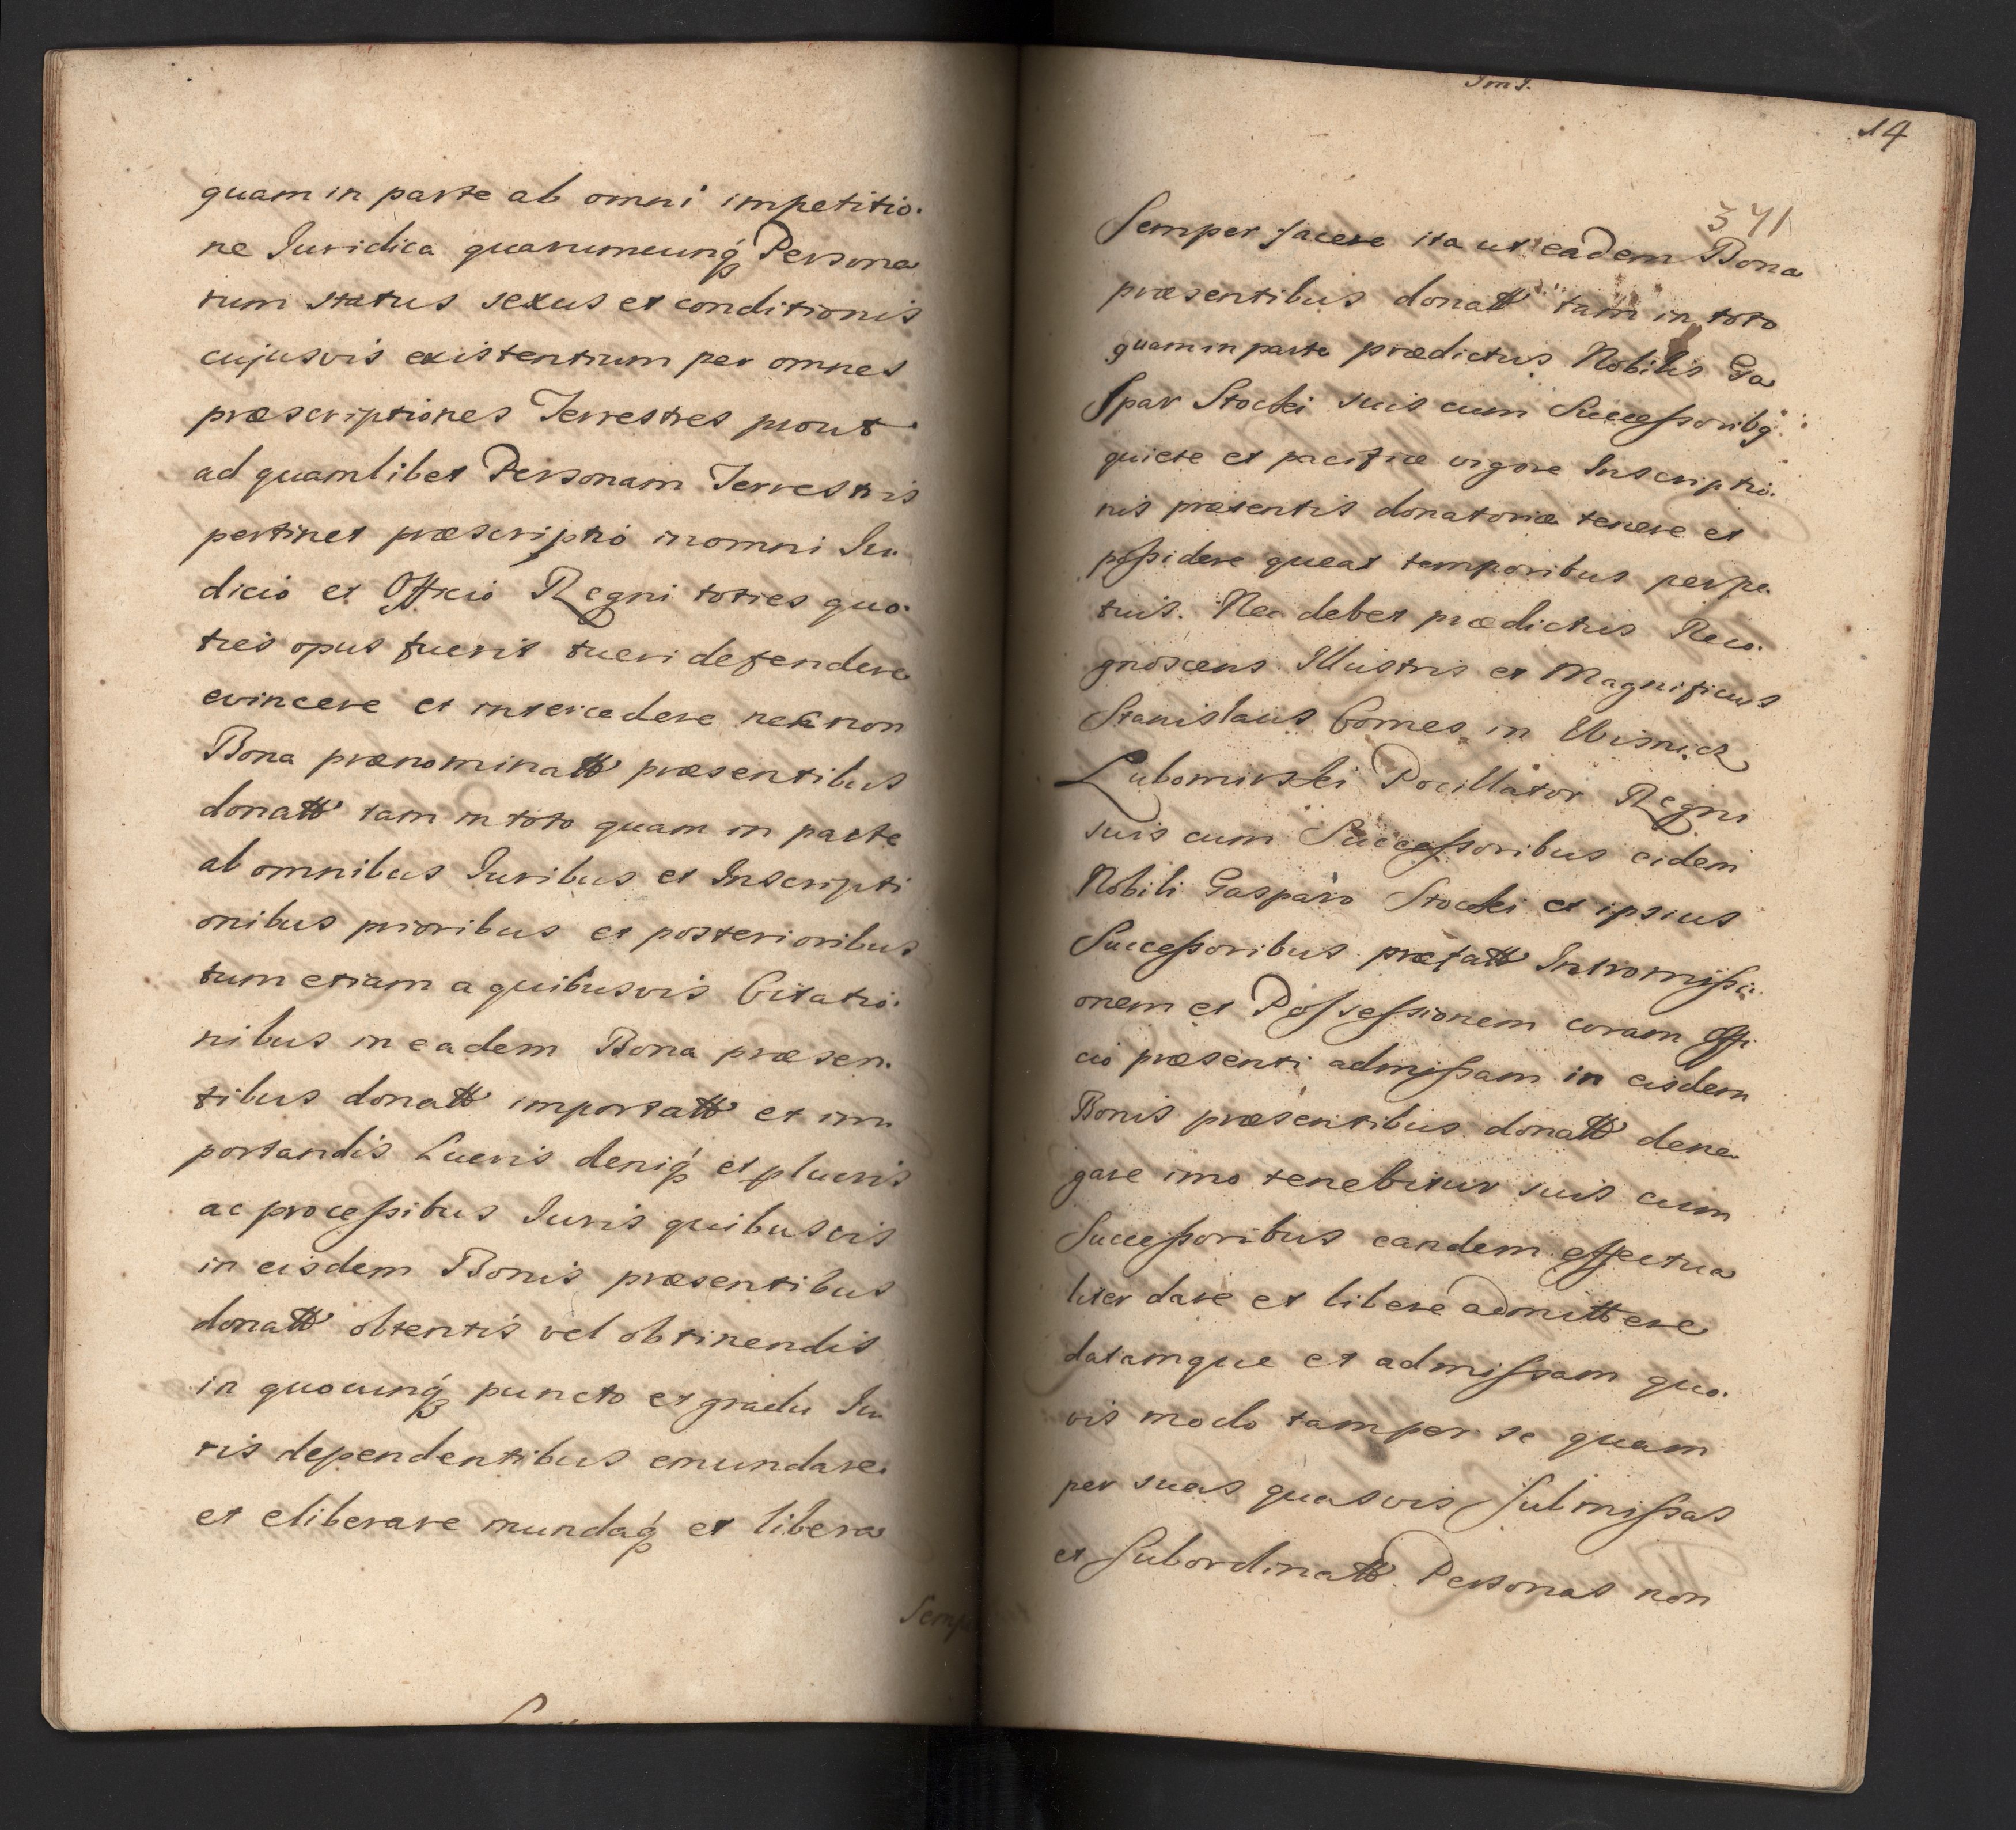 quam in parte ab omni impetitio-
ne Juridica quarumcunq́ Persona
rum status sexus et conditionis
cujusvis existentium per omnes
præscriptiones Terrestres prout
ad quamlibet Personam Terrestris
pertinet præscriptió in omni Ju
dició et Offició Regni toties quo-
ties opus fuerit tueri defendere
evincere et intercedere nec non
Bona prænominatt præsentibus
donatt tam in toto quam in parte
ab omnibus Juribus et Inscripti
onibus prioribus et posterioribus
tum etiam a quibusvis Citatio-
nibus in eadem Bona præsen-
tibus donatt importatt et im
portandis Lucris deniq́ et plucris
ac processibus Juris quibusvis
in eisdem Bonis præsentibus
donatt obtentis vel obtinendis
in quocunq́ puncto et gradu Ju
ris dependentibus emundare
et eliberare mundaq́ et libera
Semp
14
371
Semper facere ita ut eadem Bona
præsentibus donatt tam in toto
quam in parte prædictus Nobilis Ga
spar Stocki suis cum Successoribq
quiete et pacifice vigore Inscriptio-
nis præsentis donatoriæ tenere et
possidere queat temporibus perpe-
tuis. Nec debet prædictus Reco-
gnoscens Illustris et Magnificus
Stanislaus Comes in Wisnicz
Lubomirski Pocillator Regni
suis cum Successoribus eidem
Nobili Gasparo Stocki et ipsius
Successoribus præfatt Intromissi-
onem et Possessionem coram Offi
ció præsenti admissam in eisdem
Bonis præsentibus donatt dene-
gare imo tenebitur suis cum
Successoribus eandem effectua
liter dare et libere admittere
datamque et admissam quo-
vis modo tam per se quam
per suas quasvis Submissas
et Subordinatt Personas non